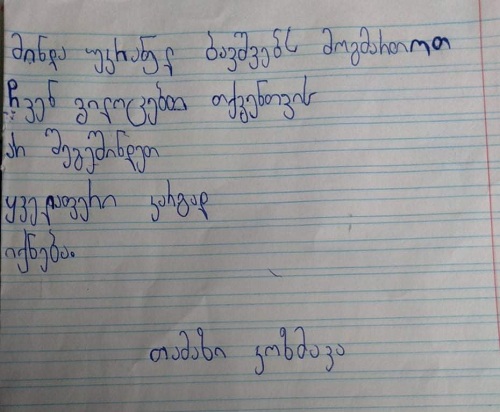 მინდა უკრაინელ ბავშვებს მოგმართოთ
ჩვენ ვილოცებთ თქვენთვის
არ შეგეშინდეთ
ყველაფერი კარგად
იქნება.
თამაზი კოზმავა